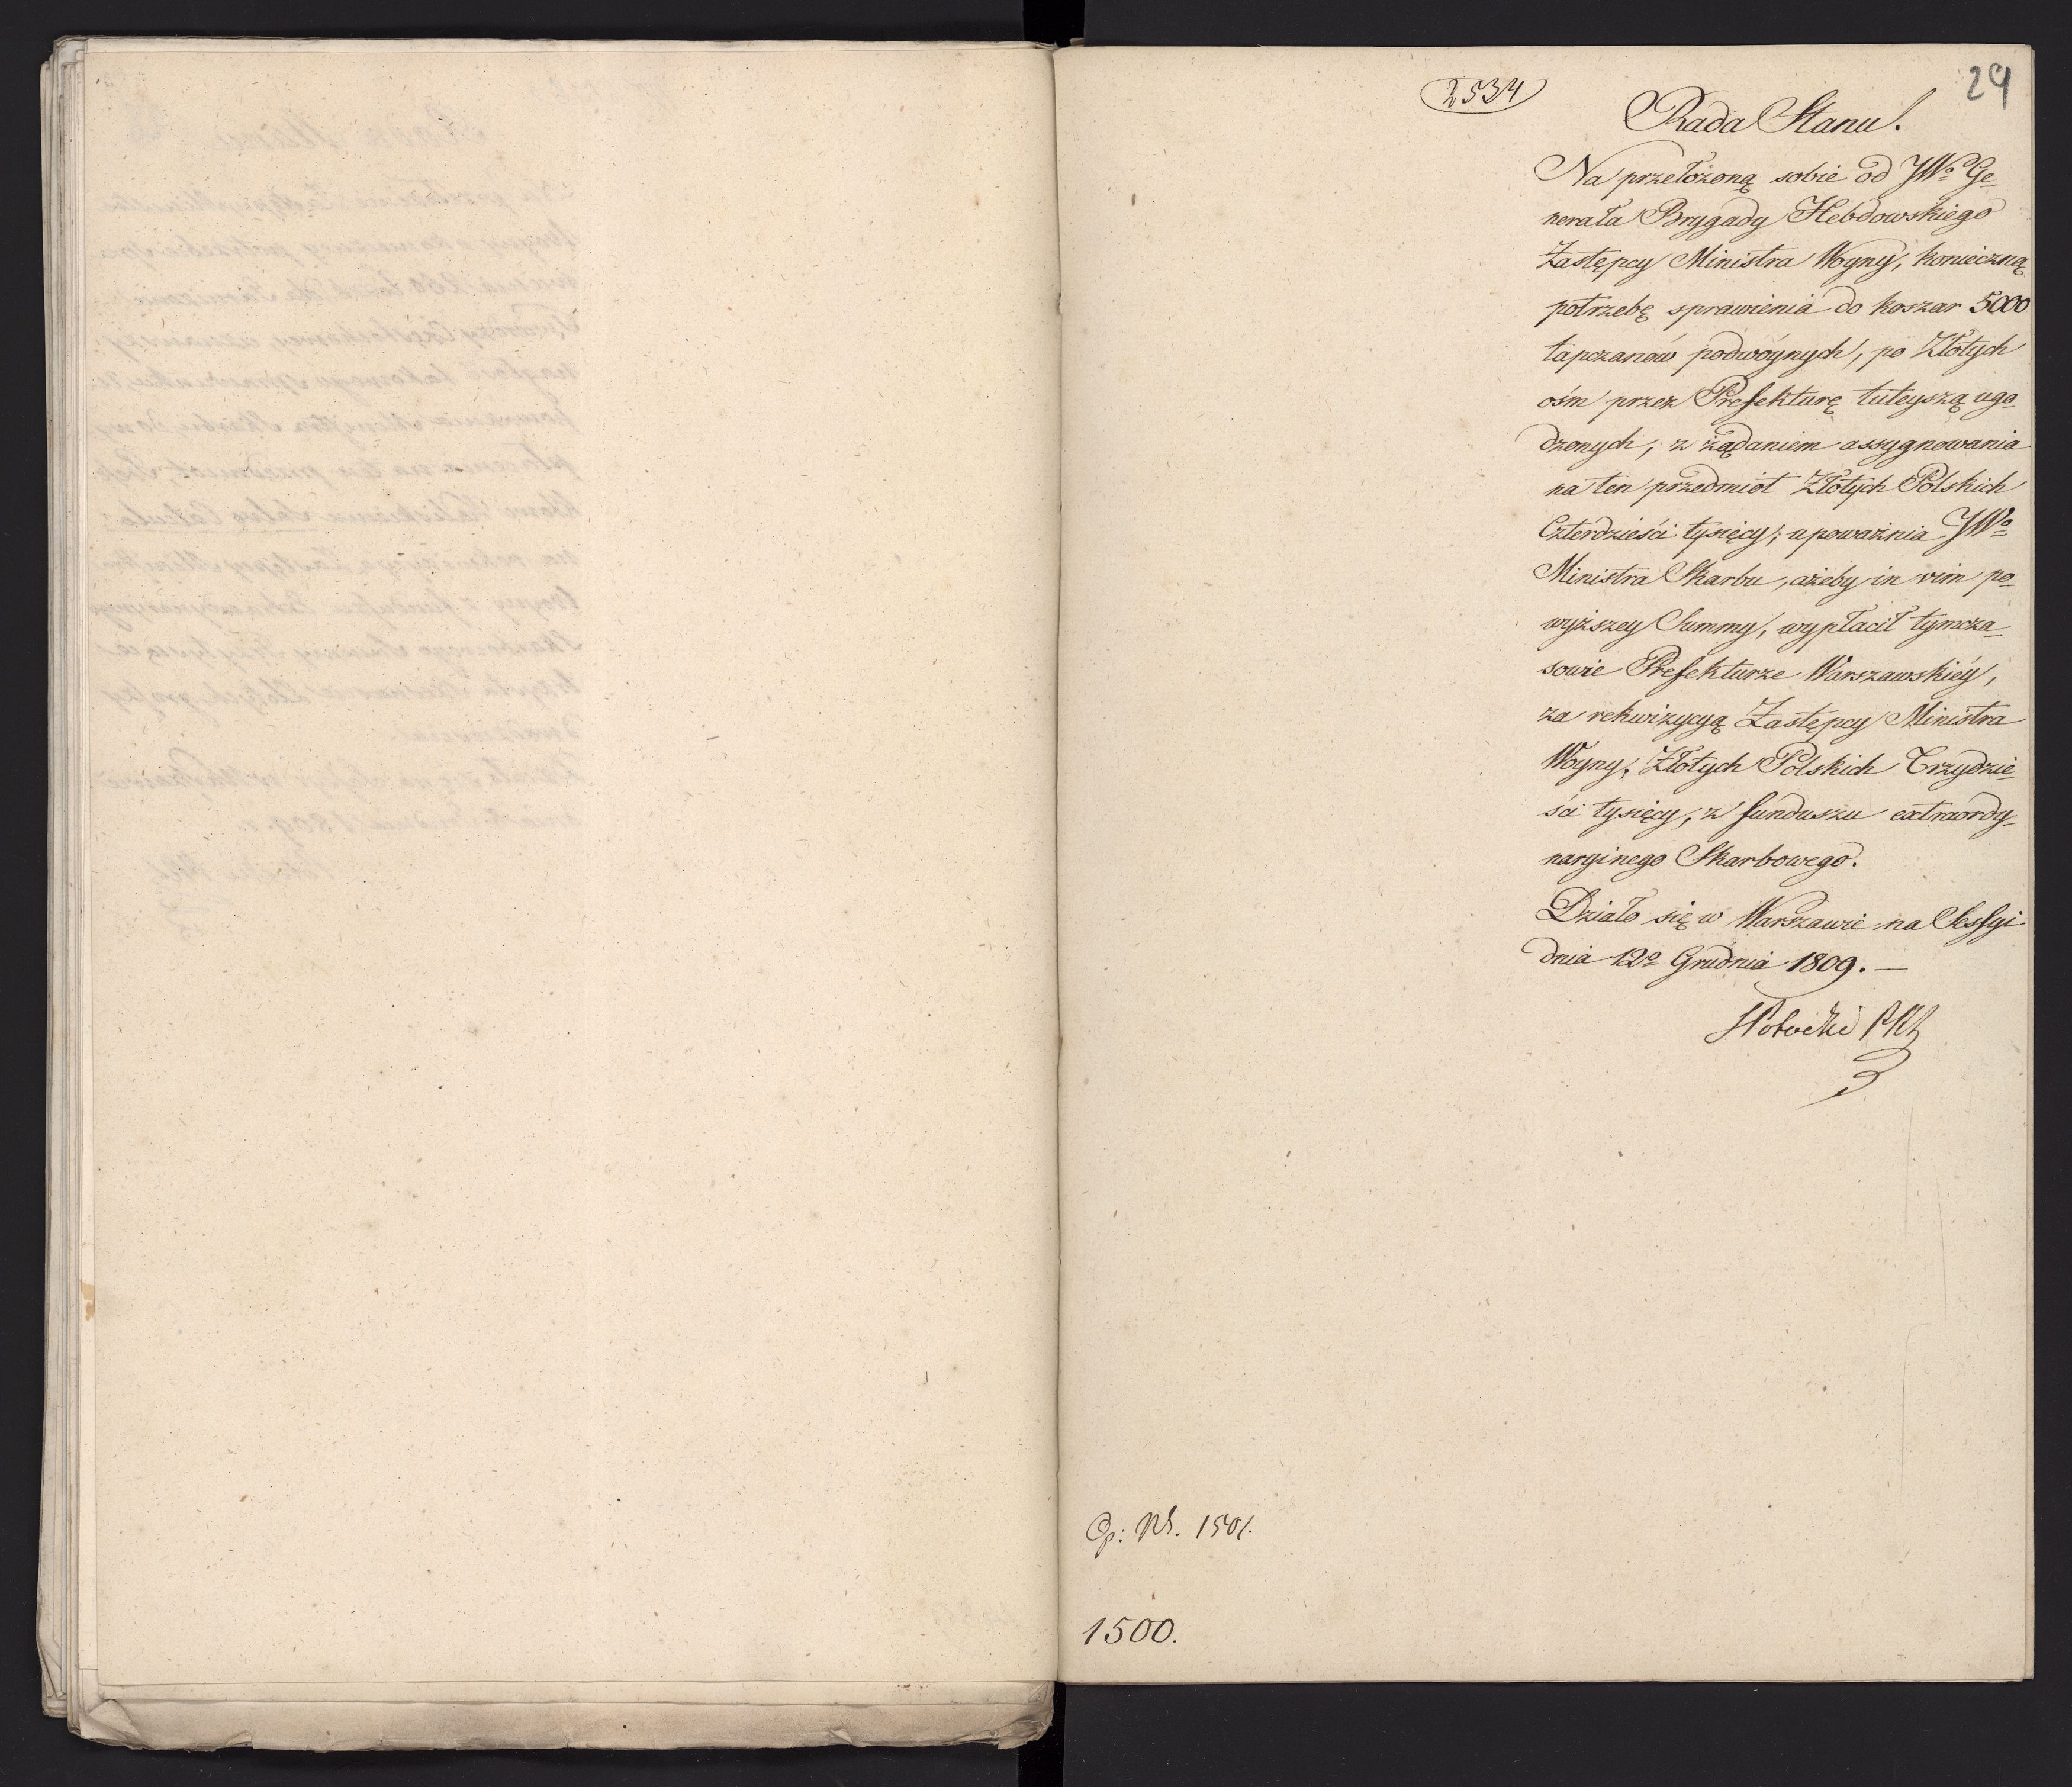 2534
29
Rada Stanu.
Na przełożoną sobie od JWo Ge_
nerała Brygady Hebdowskiego
Zastępcy Ministra Woyny, konieczną
potrzebę sprawienia do koszar 5000
tapczanów podwóynych, po Złotych
ośm przez Prefekturę tuteyszą ugo_
dzonych, z żądaniem assygnowania
na ten przedmiot Złotych Polskich
Czterdzieści tysięcy; upoważnia JWo
Ministra Skarbu, ażeby in vim po_
wyższey Summy, wypłacił tymcza_
sowie Prefekturze Warszawskiéy,
za rekwizycyą Zastępcy Ministra
Woyny, Złotych Polskich Trzydzie_
ści tysięcy, z funduszu extraordy_
naryinego Skarbowego.
Działo się w Warszawie na Sessyi
dnia 12o Grudnia 1809. —
SPotocki
Nr. 1501.
1500.